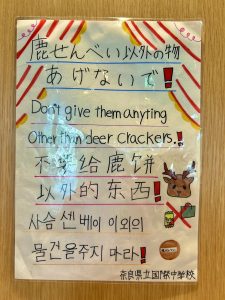 鹿せんべい以外の物
あげないで!
Don't give them anyting
Other than deer crackers!!
不要给鹿饼
以外的东西!
사슴 센베이 이외의
물건을 주지 마라!
奈良県立国際中学校